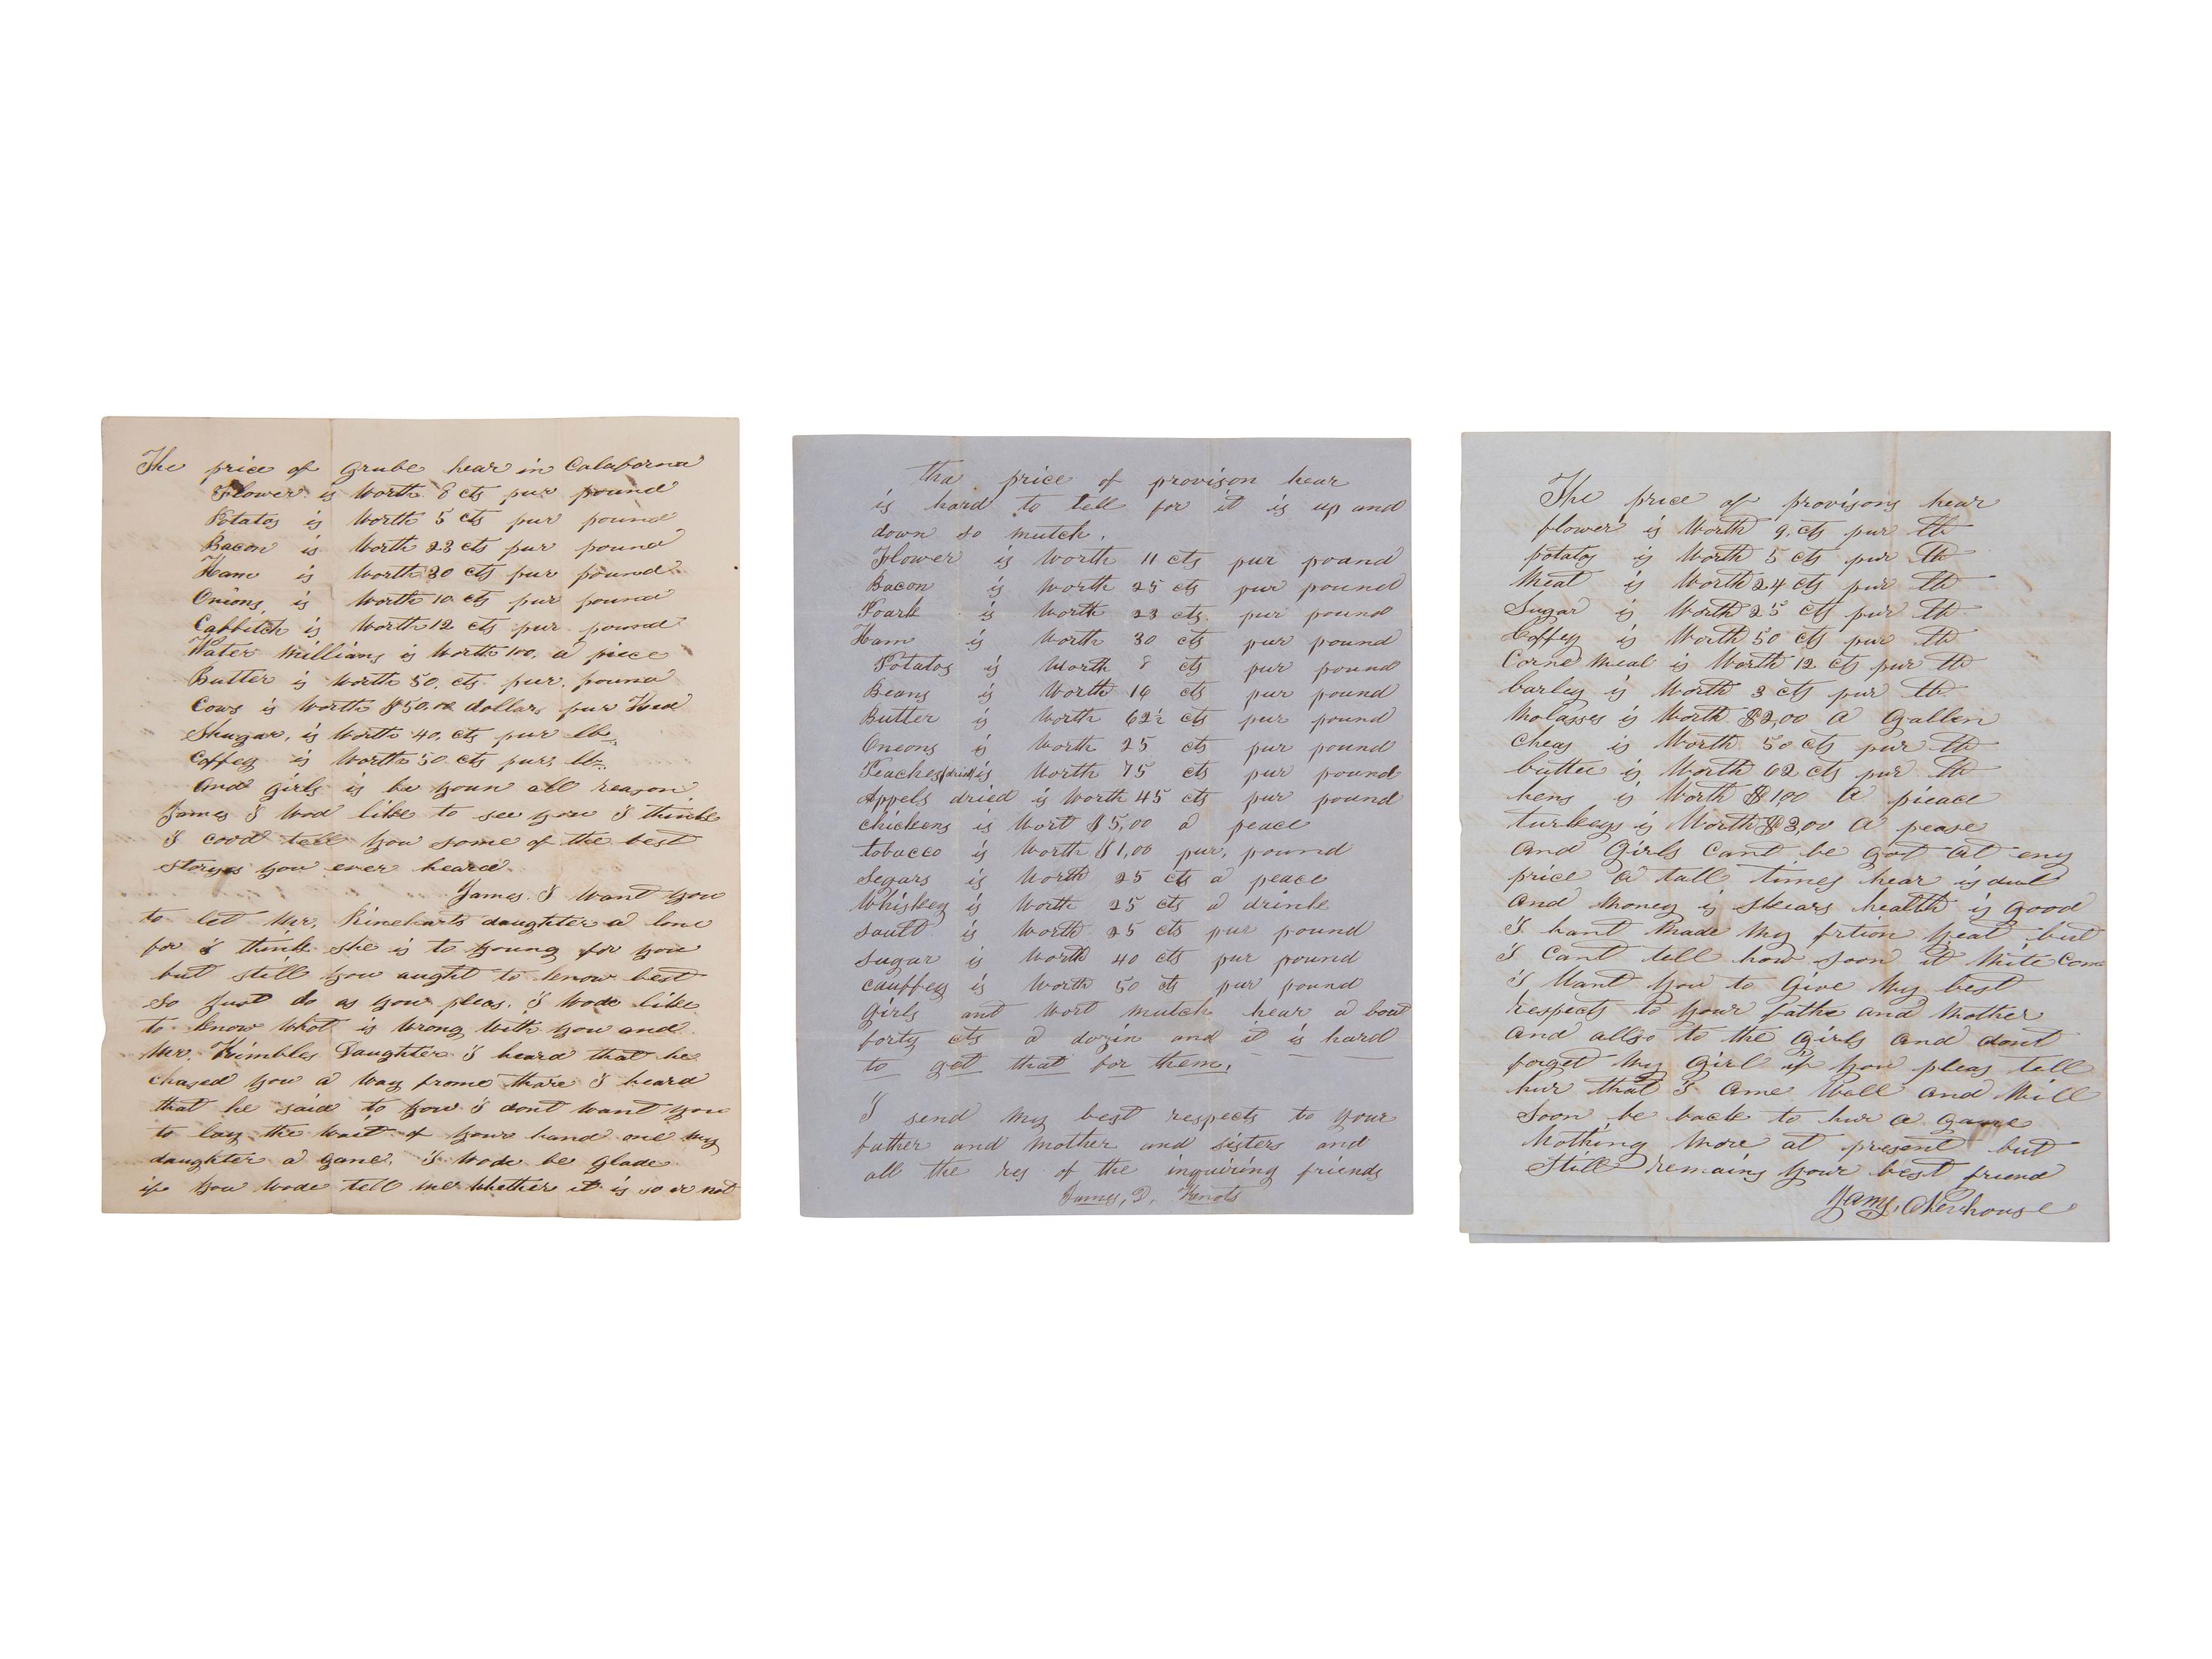 The price of grube hear in Calaforna
Flower is Worth 8 cts pur pound
Potatos is Worth 5 cts pur pound
Bacon is Worth 23 cts pur pound
Ham is Worth 30 cts pur pound
Onions is Worth 10 cts pur pound
Cabbitch is Worth 12 cts pur pound
Water millians is Worth 100, a piece
Butter is Worth 50, cts pur pound
Cows is Worth $50.00 dollars pur Hed
Shugar, is Worth 40, cts pur lb
Coffey is Worth 50 cts pur, lb
And girls is be youn all reason
James I Wod like to see you I thinke
I cood tell you some of the best
storys you ever heard
James. I Want you
to let Mr, Rineharts daughter a lone
for I think she is to young for you
but still you aught to know best
So just do as you pleas, I wode like
to know What is Wrong With you and
Mr. Kimbles Daughter I heard that he
chased you a Way frome thare I heard
that he said to you I dont Want you
to lay the Wait of your hand one my
daughter a gane, I Wode be glade
if you Wode tell me Whether it is so or not
tha price of provison hear
is hard to tell for it is up and
down so mutch,
Flower is Worth 11 cts pur pound
Bacon is Worth 25 cts pur pound
Poark is Worth 23 cts pur pound
Ham is Worth 30 cts pur pound
Potatos is Worth 8 cts pur pound
Beans is Worth 16 cts pur pound
Butter is Worth 62½ cts pur pound
Onions is Worth 25 cts pur pound
Peaches (dried) is Worth 75 cts pur pound
Appels dried is Worth 45 cts pur pound
chickens is Wort $5,00 a peace
tobacco is Worth $1,00 pur, pound
Segars is Worth 25 cts a peace
Whiskey is Worth 25 cts a drink
Sault is Worth 25 cts pur pound
Sugar is Worth 40 cts pur pound
cauffey is Worth 50 cts pur pound
Girls ant Wort mutch hear a bout
forty cts a dozin and it is hard
to get that for them,
I send my best respects to your
father and mother and sisters and
all the res of the inquiring friends
James, D, Kenots
The price of provisons hear
flower is Worth 9, cts pur lb
potatos is Worth 5 cts pur lb
Meat is Worth 24 cts pur lb
Sugar is Worth 25 cts pur lb
Coffey is Worth 50 cts pur lb
Corne meal is Worth 12 cts pur lb
barley is Worth 3 cts pur lb
Molasses is Worth $2,00 A Gallon
cheas is Worth 50 cts pur lb
butter is Worth 62 cts pur lb
hens is Worth $100 A pieace
turkeys is Worth $3,00 A pease
And Girls Cant be got At eny
price A tall times hear is dul
And Money is skears health is good
I hant Made My frtion yeat but
I Cant tell how soon it Mite Come
I Want You to Give My best
respects to your fathe and Mother
And allso to the Girls And dont
forget My Girl if you pleas tell
hur that I Ame Well And Will
Soon be back to hur A gane
Nothing More at present but
Still remains your best friend
James, Newhouse